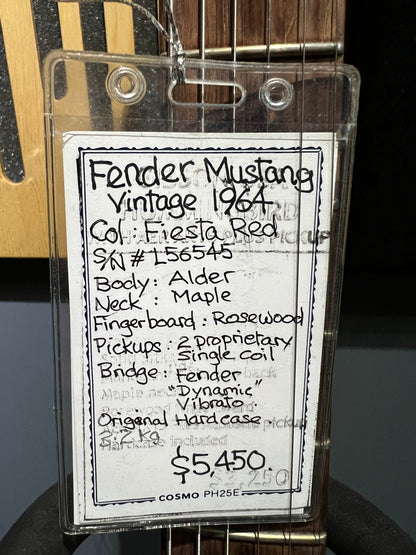 Fender Mustang
Vintage 1964.
Col: Fiesta Red
S/N # L56545
Body: Alder
Neck: Maple
Fingerboard: Rosewood
Pickups: 2 proprietary
Single coil
Bridge: Fender
"Dynamic"
Vibrato.
Original Hardcase
3.2 kg
Hardcase included
$5,450.
$3,250
COSMO PH25E